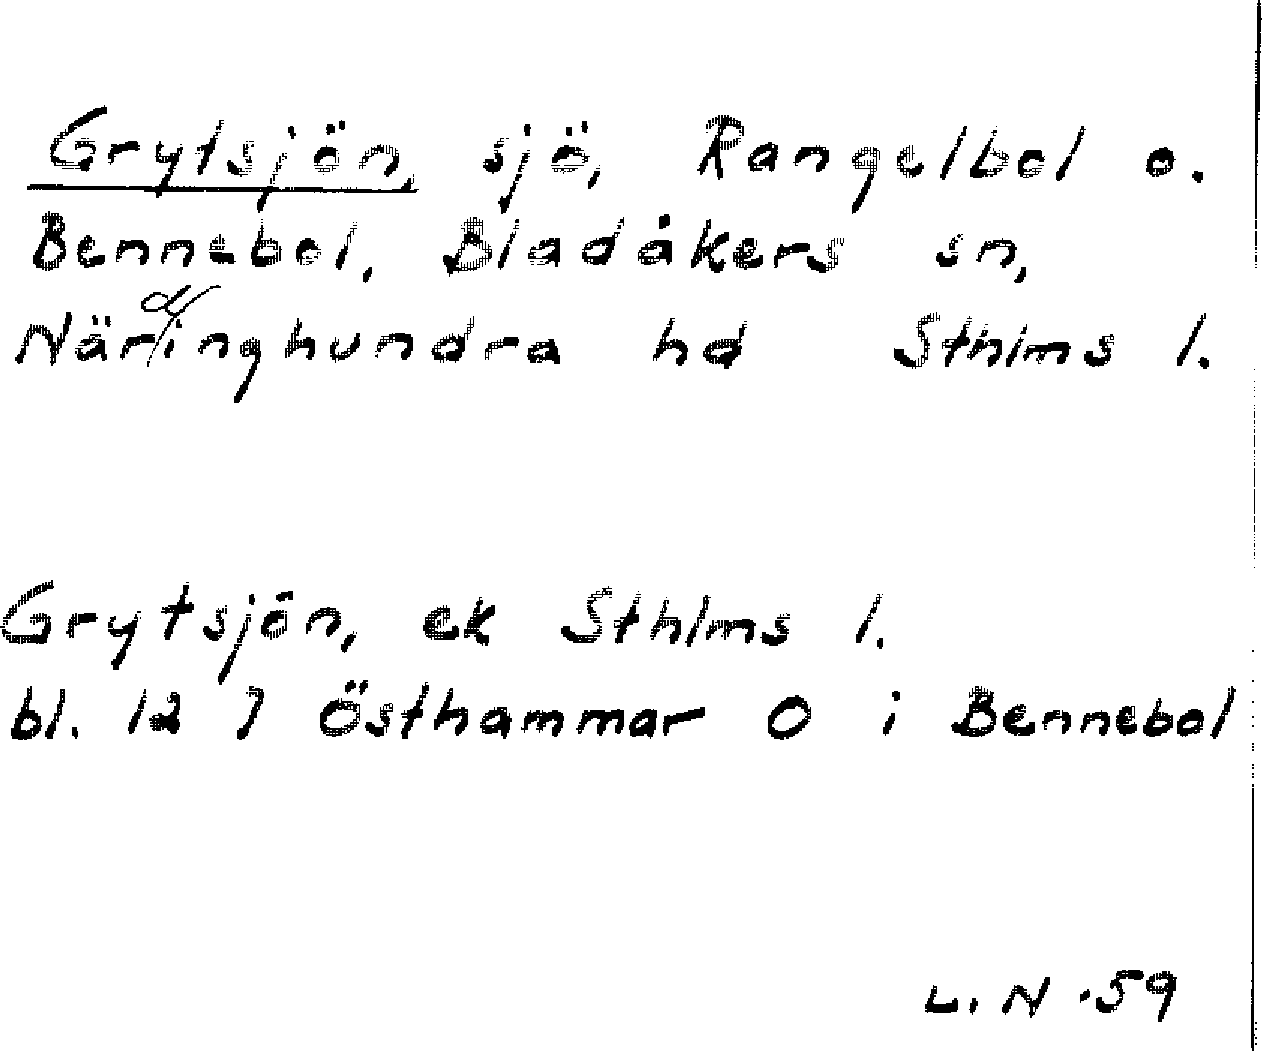 Grytsjön, sjö, Rangelbol o.
Bennebol, Bladåkers sn,
Närdinghundra hd Sthlms l.
Grytsjön, ek Sthlms l.
bl. 12 7 Östhammar O i Bennebol
L. N. 59